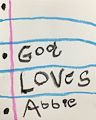 God
LOVES
Abbie